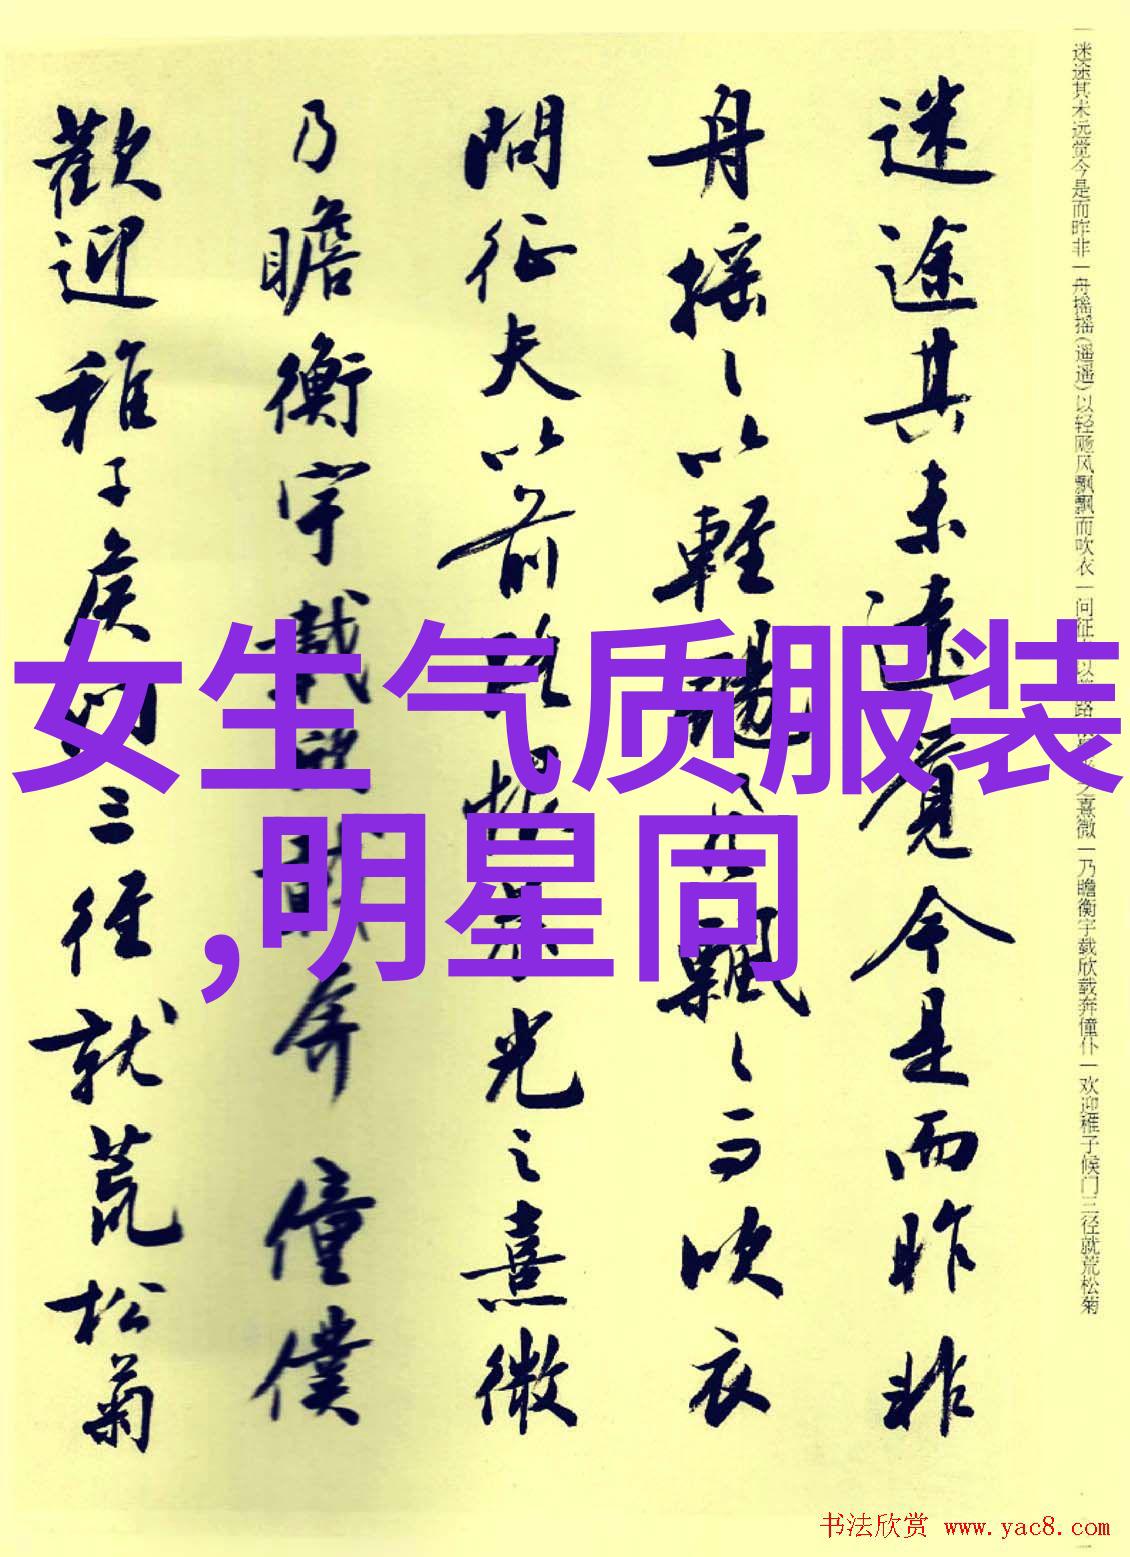 一迷途其未远觉今是而昨非一舟摇摇(遥遥)以轻飏风飘飘而吹衣一问征以路之熹微一乃瞻衡宇载欣载奔僮仆一欢迎稚子候门三径就荒松菊
迷途其未遠覺今是而昨非
舟摇々以輕颺風飄々而吹衣
問征夫以前路恨晨光之熹微
乃瞻衡宇載欣載奔僮僕
歡迎稚子候門三徑就荒松菊
女生气质服装
,明星同
书法欣赏 www.yac8.com